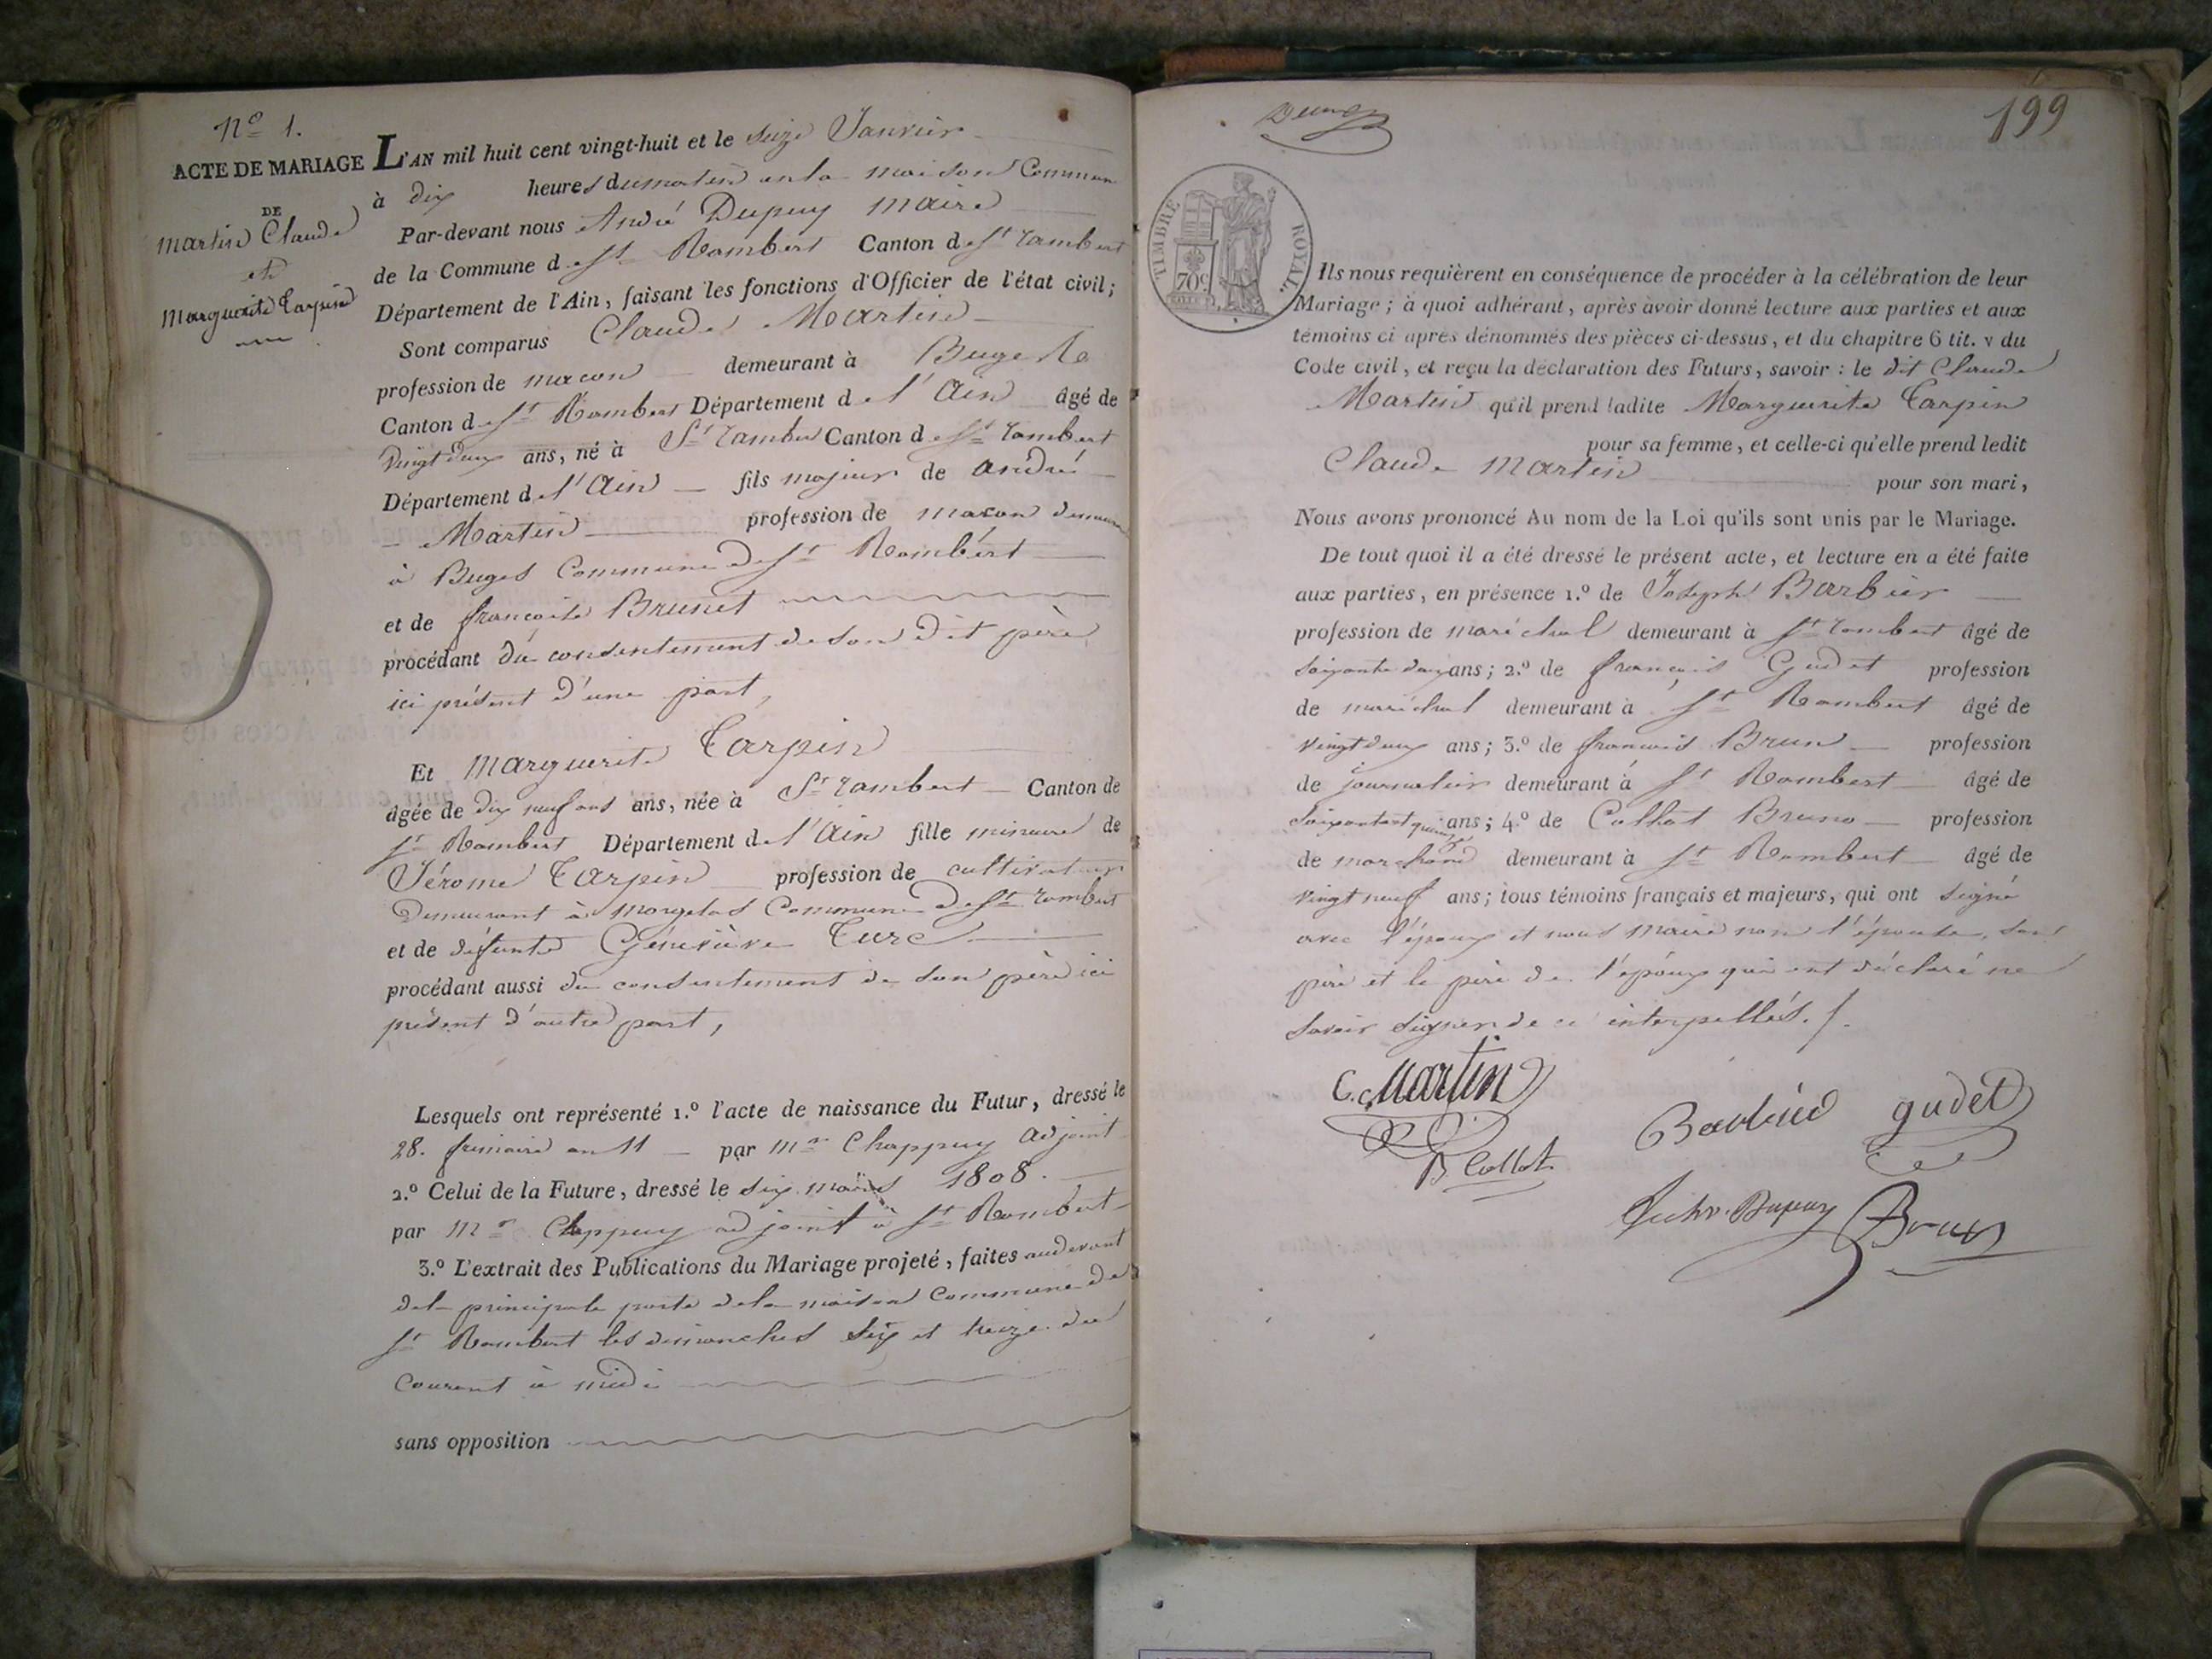 N.º 1.
ACTE DE MARIAGE
DE
Martin Claude
et
Marguerite Tarpin
L'AN mil huit cent vingt-huit et le seize Janvier
à dix heures du matin en la maison Commune
Par-devant nous André Dupuy Maire
de la Commune de St Rambert Canton de St rambert
Département de l'Ain, faisant les fonctions d'Officier de l'état civil;
Sont comparus Claude Martin
profession de macon demeurant à Buges
Canton de St Rambert Département de l'Ain âgé de
vingt deux ans, né à St rambert Canton de St rambert
Département de l'Ain fils majeur de andré
Martin profession de macon demeurant
à Buges Commune de St Rambert
et de françoise Brunet
procédant du consentement de son dit père
ici présent d'une part,
Et Marguerite Tarpin
âgée de dix neuf ans ans, née à St rambert Canton de
St Rambert Département de l'Ain fille mineure de
Jérome Tarpin profession de cultivateur
Demeurant à morgelas Commune de St rambert
et de défunte Géneviève Turc
procédant aussi du consentement de son père ici
présent d'autre part,
Lesquels ont représenté 1.º l'acte de naissance du Futur, dressé le
28. frimaire an 11 par Mr Chappuy adjoint
2.º Celui de la Future, dressé le six mars 1808.
par Mr Chappuy adjoint à St Rambert
3.º L'extrait des Publications du Mariage projeté, faites audevant
de la principale porte de la maison Commune de
St Rambert les dimanches six et treize du
Courant à midi
sans opposition
199
TIMBRE ROYAL.
70c
Ils nous requièrent en conséquence de procéder à la célébration de leur
Mariage; à quoi adhérant, après avoir donné lecture aux parties et aux
témoins ci après dénommés des pièces ci-dessus, et du chapitre 6 tit. v du
Code civil, et reçu la déclaration des Futurs, savoir : le dit Claude
Martin qu'il prend ladite Marguerite Tarpin
pour sa femme, et celle-ci qu'elle prend ledit
Claude Martin pour son mari,
Nous avons prononcé Au nom de la Loi qu'ils sont unis par le Mariage.
De tout quoi il a été dressé le présent acte, et lecture en a été faite
aux parties, en présence 1.º de Joseph Barbier
profession de maréchal demeurant à St rambert âgé de
soixante dix ans; 2.º de françois Gudet profession
de maréchal demeurant à St Rambert âgé de
vingt deux ans; 3.º de francois Brun profession
de journalier demeurant à St Rambert âgé de
soixante et quinze ans; 4.º de Collot Bruno profession
de marchand demeurant à St Rambert âgé de
vingt neuf ans; tous témoins français et majeurs, qui ont signé
avec l'époux et nous maire non l'épouse, son
père et le père de l'époux qui ont déclaré ne
savoir signer de ce interpellés. /.
C. Martin
B Collot
Barbier
gudet
Dupuy
Brun